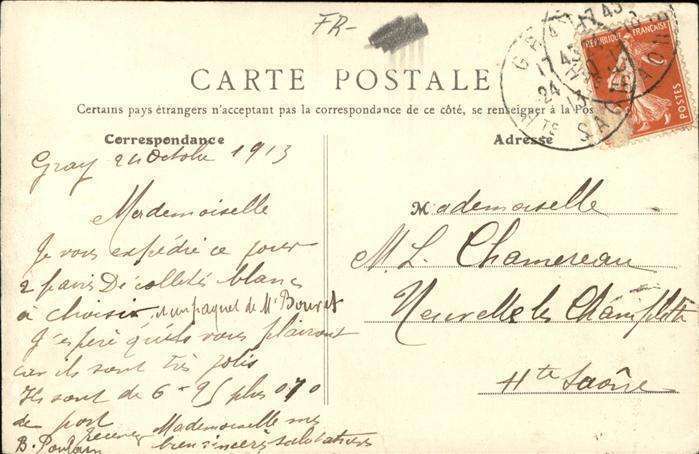 FR-
CARTE POSTALE
Certains pays étrangers n'acceptant pas la correspondance de ce côté, se renseigner à la Pos
Correspondance
Gray 24 Octobre 1913
Mademoiselle
Je vous expédie ce jour
2 paires Décolletés blancs
à choisir un paquet de Mr Bouvet
J'espère qu'ils vous plairont
car ils sont très jolis
Ils sont de 6-95 plus 0 70
de port
recevez Mademoiselle mes
bien sincères salutations
B.
Adresse
Mademoiselle
M. L. Chamereau
Neuvelle les Champlitte
Hte Saône
REPUBLIQUE FRANÇAISE
POSTES
GRAY
17 45
24